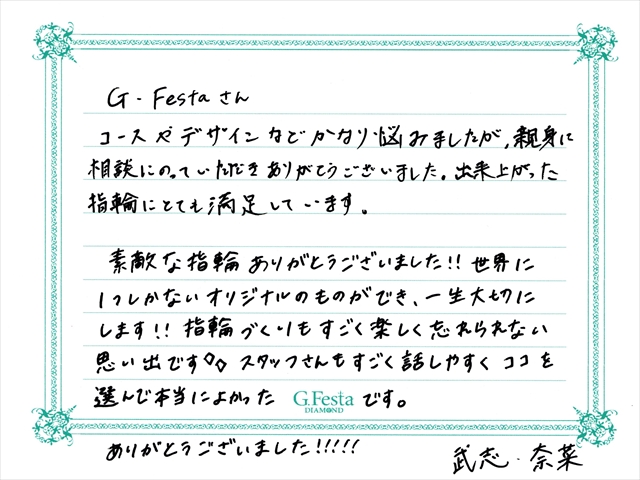 G-Festaさん
コースやデザインなどかなり悩みましたが、親身に
相談にのっていただきありがとうございました。出来上がった
指輪にとても満足しています。
素敵な指輪ありがとうございました!!世界に
1つしかないオリジナルのものができ、一生大切に
します!!指輪づくりもすごく楽しく忘れられない
思い出です◇◇スタッフさんもすごく話しやすくココを
選んで本当によかった G.Festa DIAMOND です。
ありがとうございました!!!!!
武志・奈菜